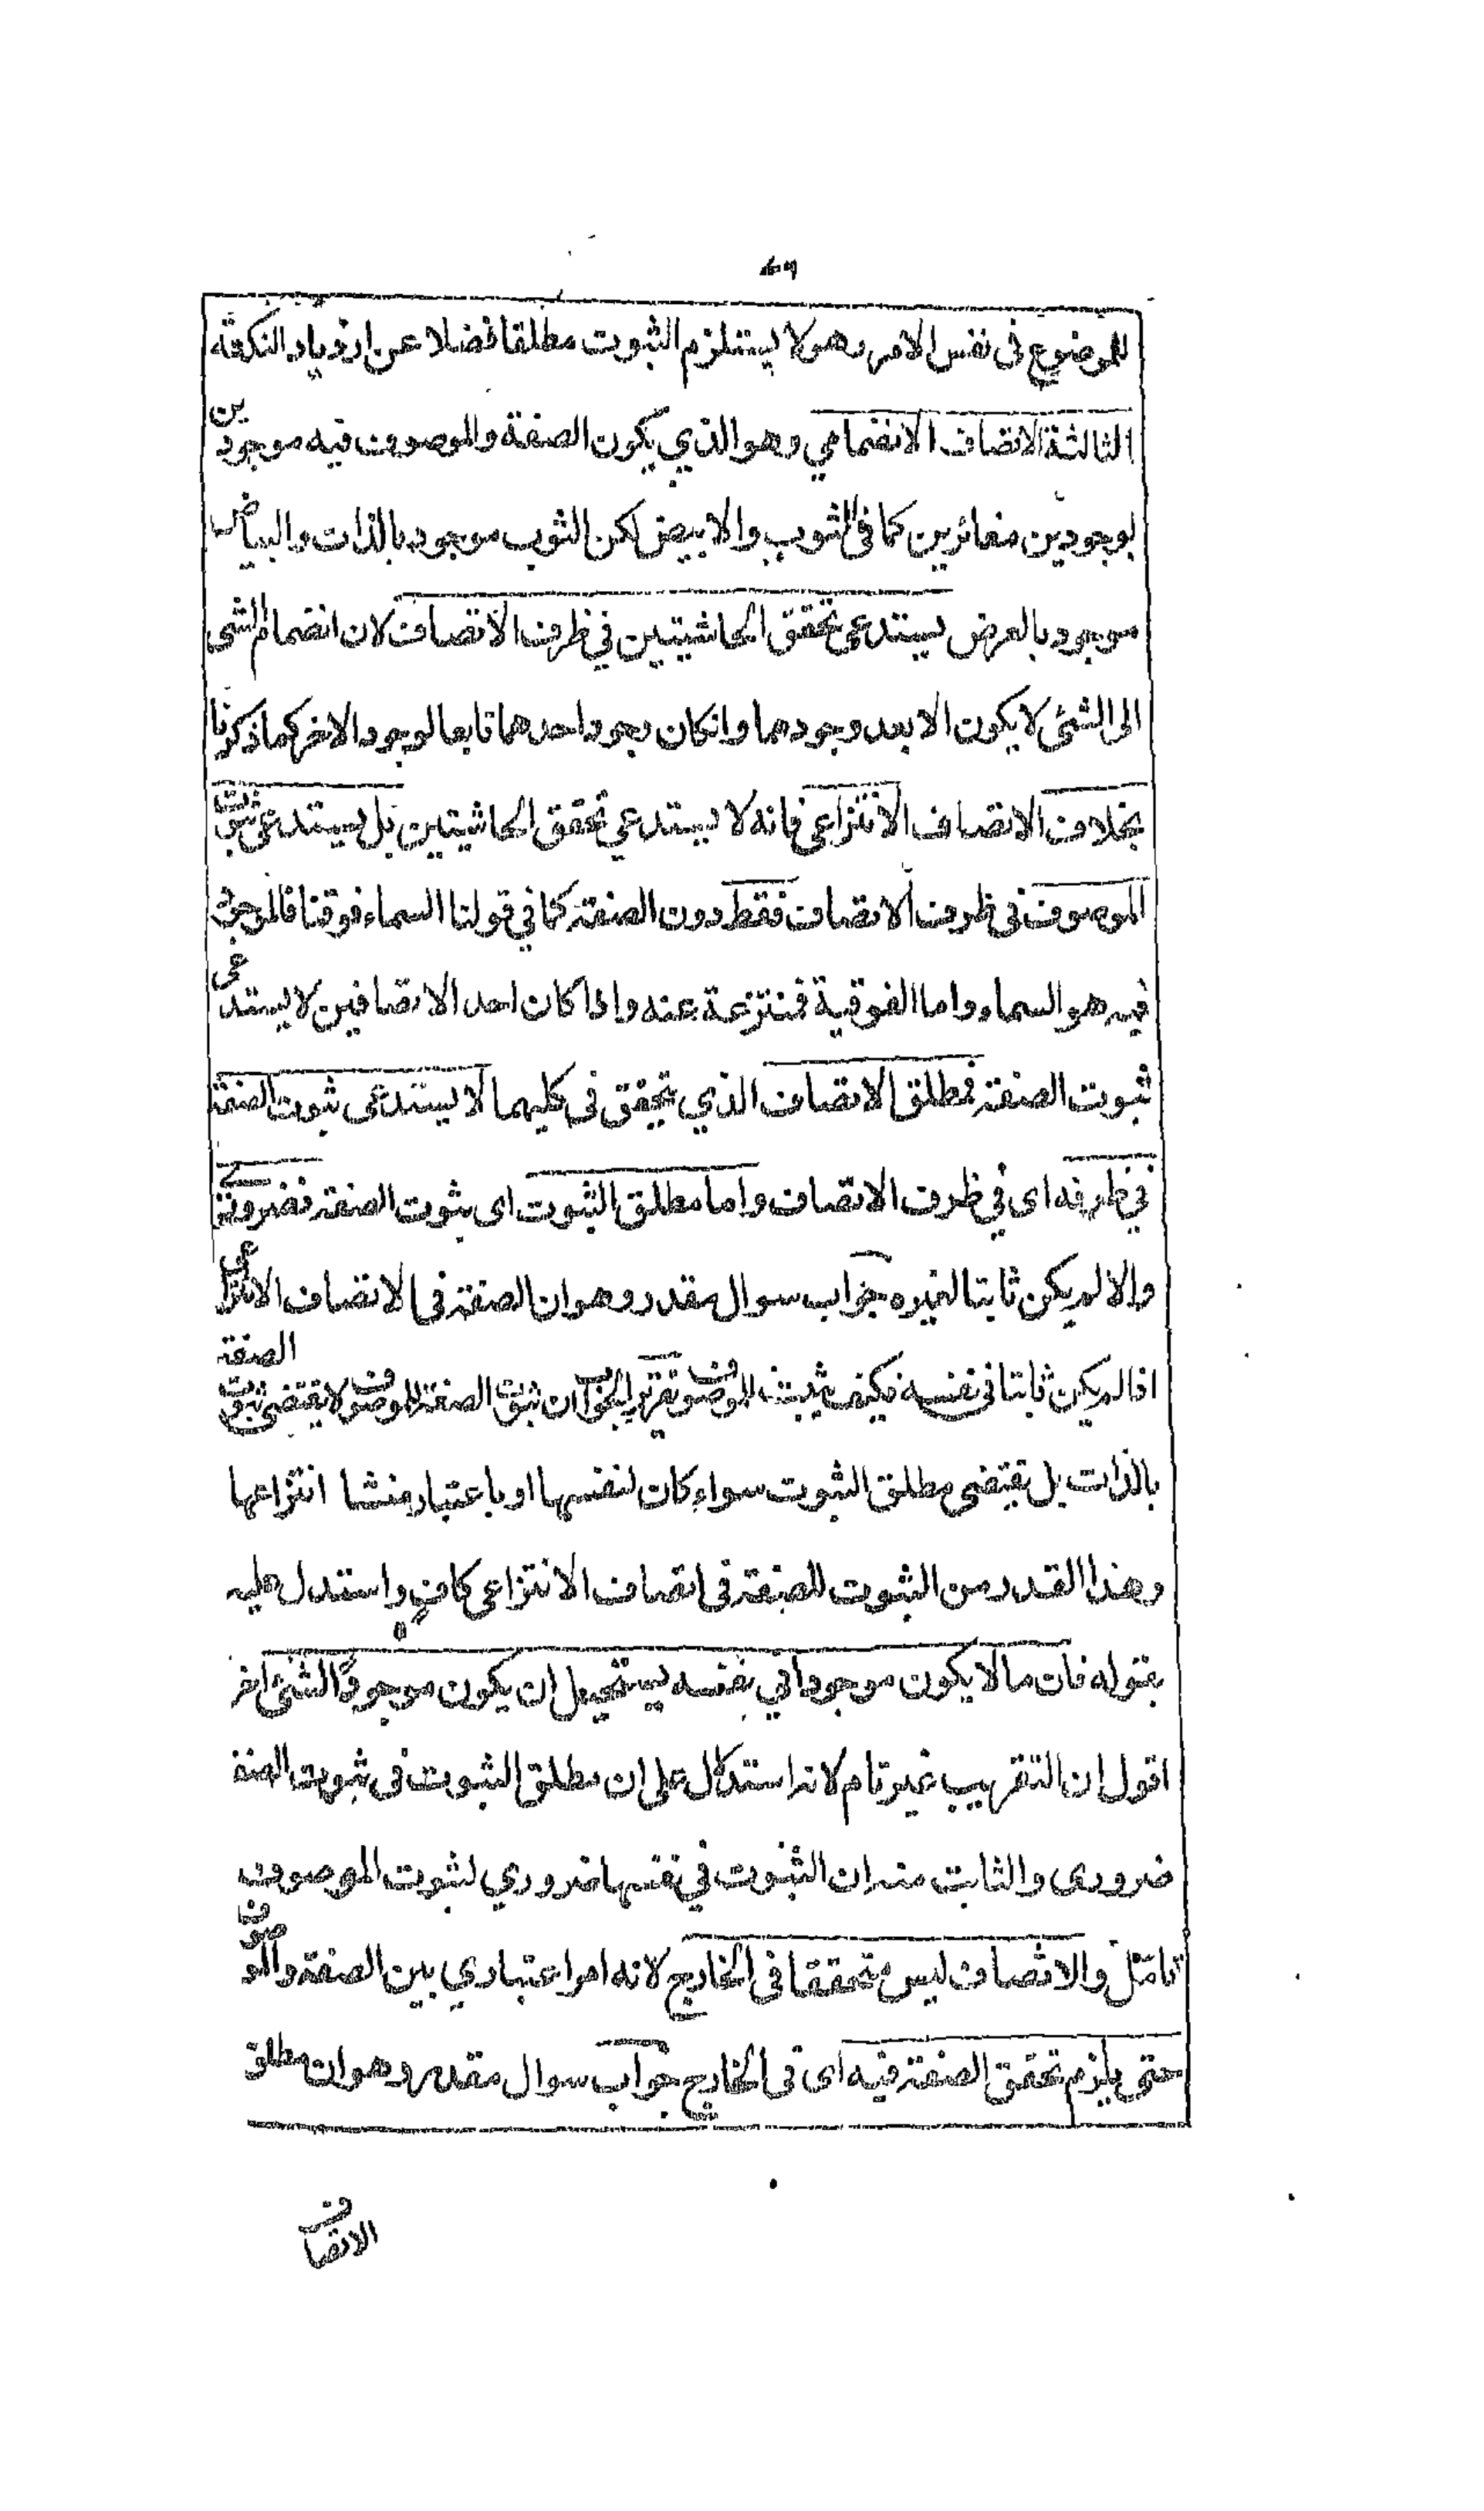 ٧٩
للموضوع فى نفس الامر وهو لا يستلزم الثبوت مطلقا فضلا عن ازدياد النكتة
الثالثة الاتصاف الانضمامي وهو الذي يكون الصفة والموصوف فيه موجودين
بوجودين مغائرين كما فى الثوب والابيض لكن الثوب موجود بالذات والبياض
موجود بالعرض يستدعى تحقق الحاشيتين في ظرف الاتصاف لان انضمام الشى
الى الشئ لا يكون الا بعد وجودهما وانكان وجود احدهما تابعا لوجود الاخر كما ذكرنا
بخلاف الاتصاف الانتزاعى فانه لا يستدعي تحقق الحاشيتين بل يستدعى ثبوت
الموصوف فى ظرف الاتصاف فقط دون الصفة كما في قولنا السماء فوقنا فالموجود
فيه هو السماء واما الفوقية فمنتزعة عنه واذا كان احد الاتصافين لا يستدعى
ثبوت الصفة فمطلق الاتصاف الذي يتحقق فى كليهما لا يستدعى ثبوت الصفة
في ظرفه اى في ظرف الاتصاف واما مطلق الثبوت اى ثبوت الصفة فضروري
والا لم يكن ثابتا لغيره جواب سوال مقدر وهو ان الصفة فى الاتصاف الانتزاعى
اذا لم يكن ثابتا فى نفسه فكيف يثبت للموصوف تقرير الجواب ان ثبوت الصفة للموصوف لا يقتضى ثبوت الصفة
بالذات بل يقتضى مطلق الثبوت سواء كان لنفسها او باعتبار منشا انتزاعها
وهذا القدر من الثبوت للصفة فى اتصاف الانتزاعى كاف واستدل عليه
بقوله فان ما لا يكون موجودا في نفسه يستحيل ان يكون موجودا لشئ اخر
اقول ان التقريب غير تام لانه استدلال على ان مطلق الثبوت فى ثبوت الصفة
ضرورى والثابت منه ان الثبوت في نفسها ضروري لثبوت الموصوف
تامل والاتصاف ليس متحققا فى الخارج لانه امر اعتبادي بين الصفة والموصوف
حتى يلزم تحقق الصفة فيه اى فى الخارج جواب سوال مقدر وهو ان مطلق
الاتصاف